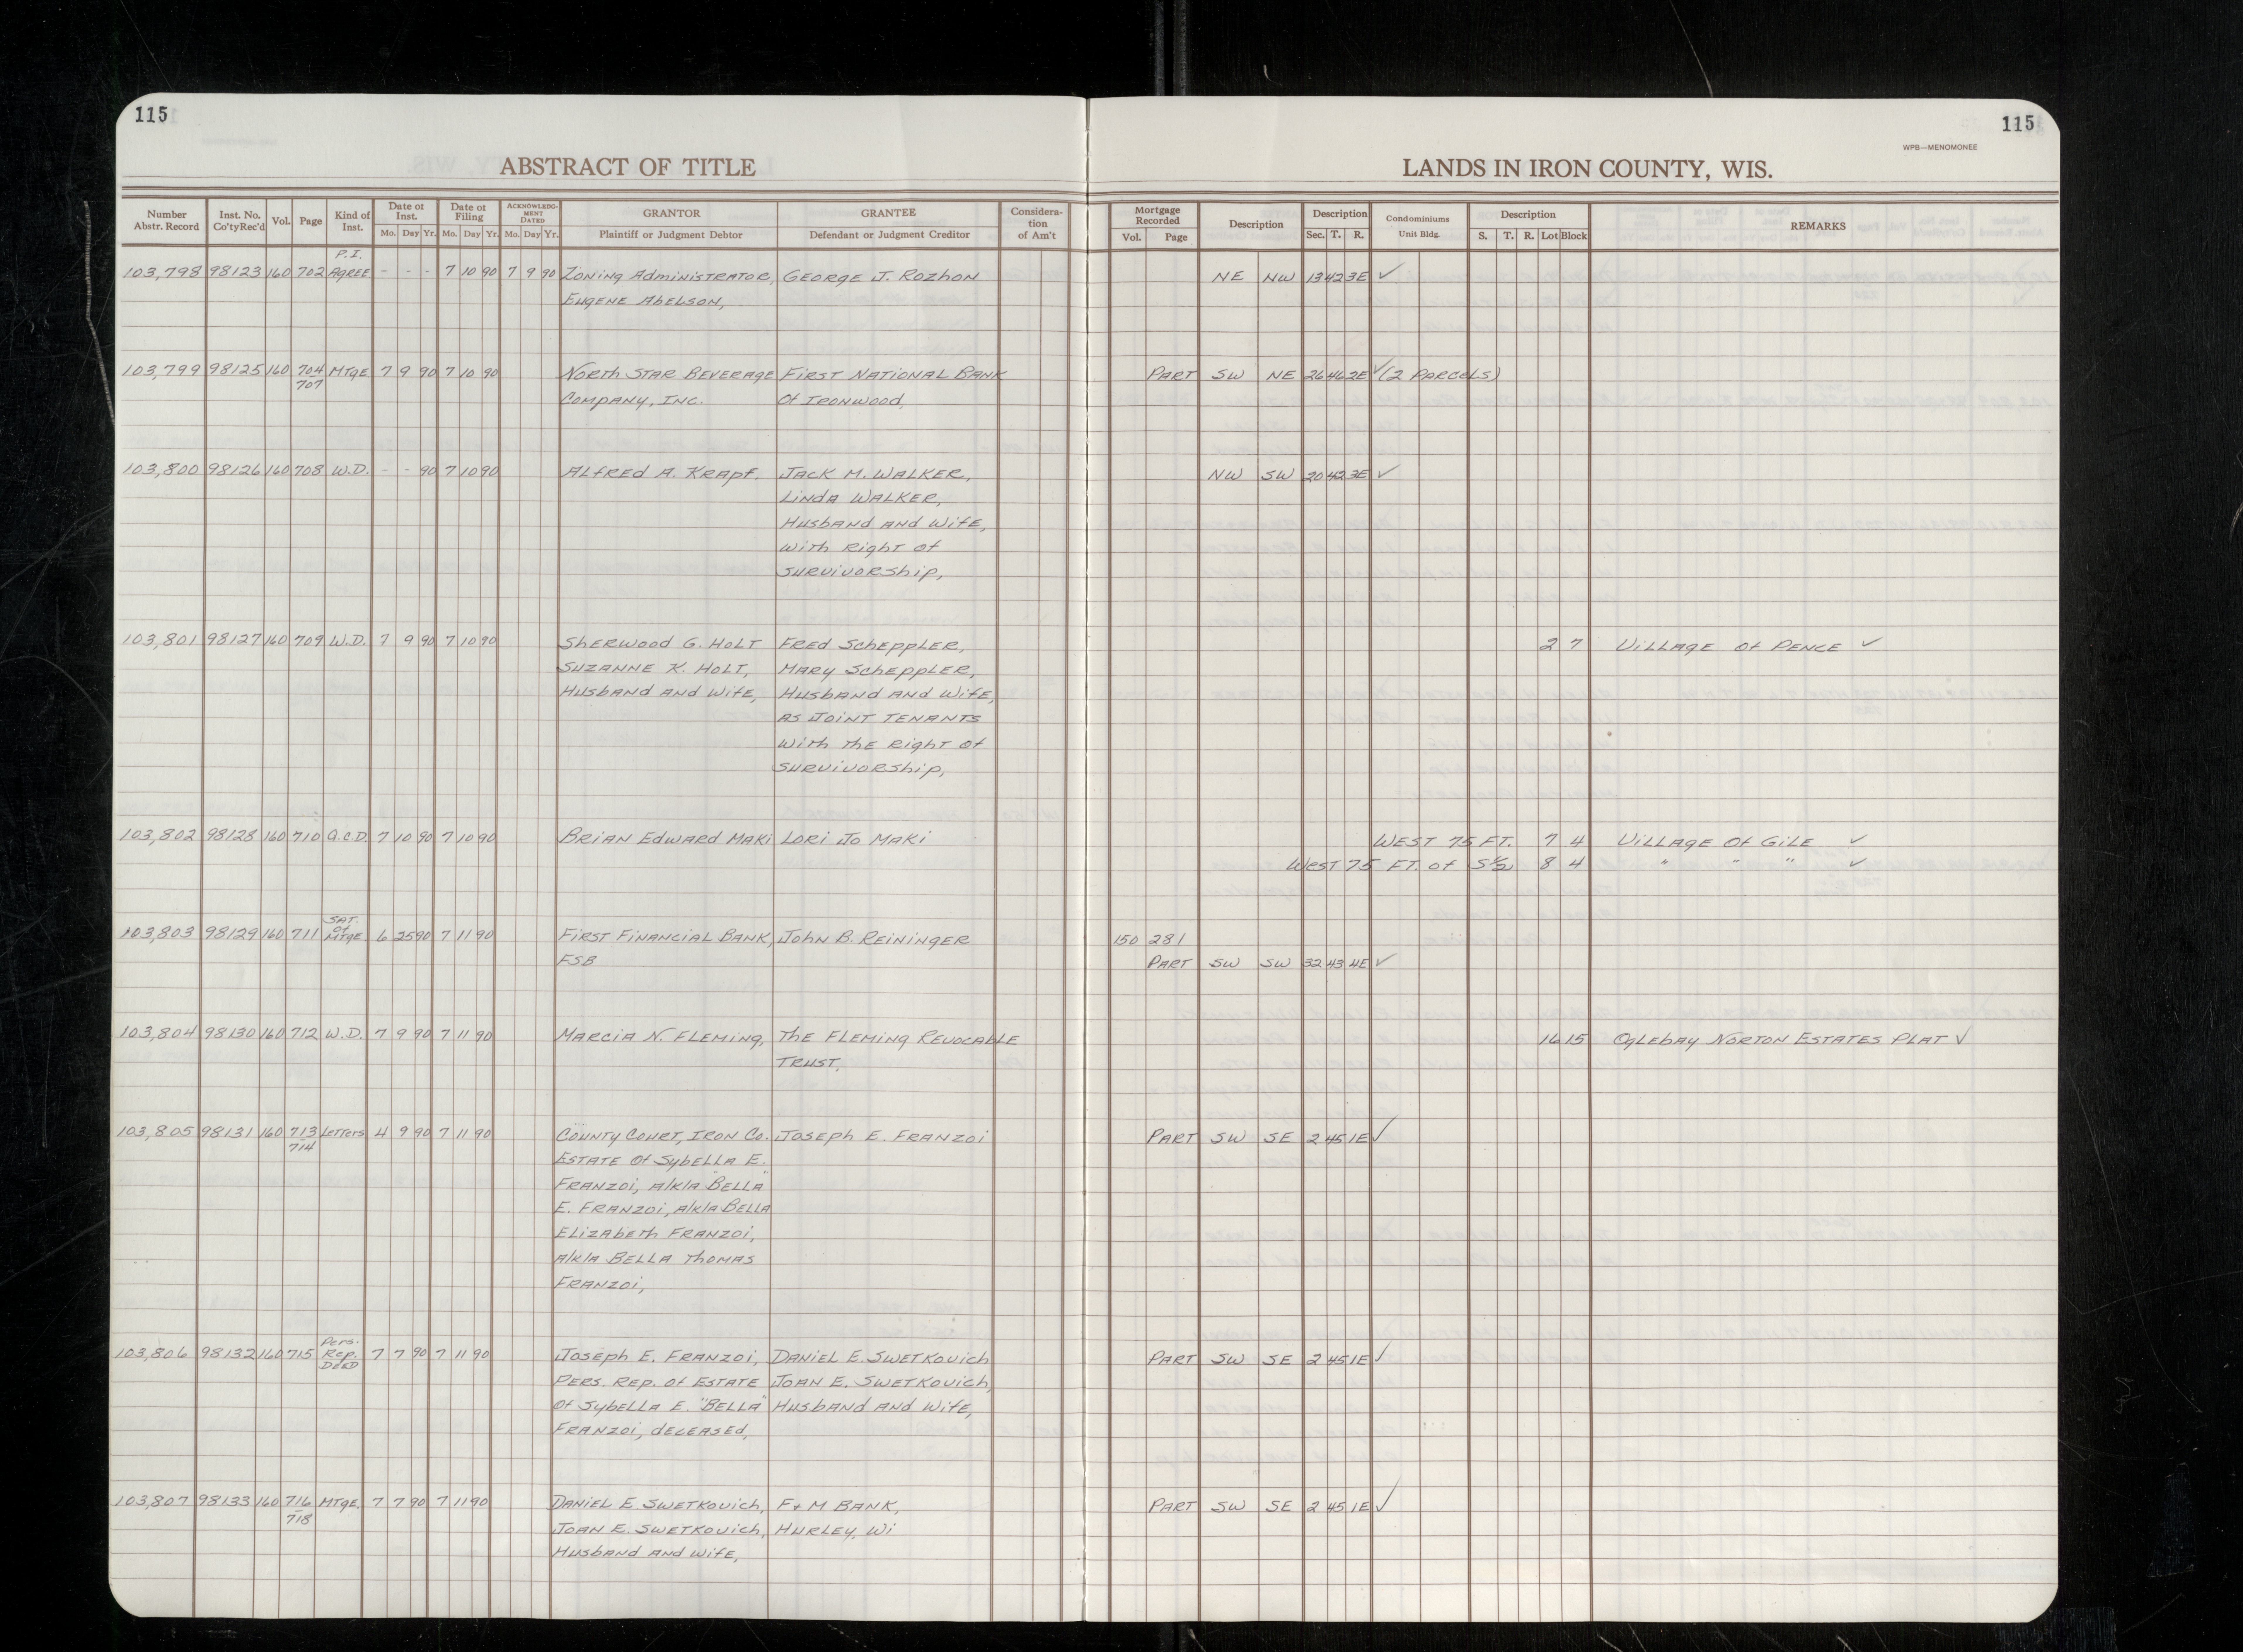 115
115
WPB—MENOMONEE
ABSTRACT OF TITLE
LANDS IN IRON COUNTY, WIS.
Number Abstr. Record
Inst. No. Co'ty Rec'd
Vol.
Page
Kind of Inst.
Date of Inst.
Mo. Day Yr.
Date of Filing
Mo. Day Yr.
ACKNOWLEDG-MENT DATED
Mo. Day Yr.
GRANTOR
Plaintiff or Judgment Debtor
GRANTEE
Defendant or Judgment Creditor
Considera-tion of Am't
Mortgage Recorded
Vol. Page
Description
Description
Sec. T. R.
Condominiums
Unit Bldg.
Description
S. T. R. Lot Block
REMARKS
P.I.
103,798 98123 160 702 Agree. - - - 7 10 90 7 9 90 Zoning Administrator, George J. Rozhon NE NW 13 42 3E ✓
Eugene Abelson,
103,799 98125 160 704 Mtge. 7 9 90 7 10 90 North Star Beverage First National Bank Part SW NE 26 46 2E ✓ (2 Parcels)
707 Company, Inc. Of Ironwood,
103,800 98126 160 708 W.D. - - 90 7 10 90 Alfred A. Krapf. Jack M. Walker, NW SW 20 42 3E ✓
Linda Walker,
Husband and Wife,
With Right of
Survivorship,
103,801 98127 160 709 W.D. 7 9 90 7 10 90 Sherwood G. Holt Fred Scheppler, 2 7 Village of Pence ✓
Suzanne K. Holt, Mary Scheppler,
Husband and Wife, Husband and Wife,
as Joint Tenants
With the Right of
Survivorship,
103,802 98128 160 710 Q.C.D. 7 10 90 7 10 90 Brian Edward Maki Lori Jo Maki West 75 Ft. 7 4 Village Of Gile ✓
West 75 Ft. of S½ 8 4 " " " ✓
Sat.
of
103,803 98129 160 711 Mtge 6 25 90 7 11 90 First Financial Bank, John B. Reininger 150 281
FSB Part SW SW 32 43 4E ✓
103,804 98130 160 712 W.D. 7 9 90 7 11 90 Marcia N. Fleming, The Fleming Revocable 16 15 Oglebay Norton Estates Plat ✓
Trust,
103,805 98131 160 713 Letters 4 9 90 7 11 90 County Court, Iron Co. Joseph E. Franzoi Part SW SE 2 45 1E ✓
714 Estate Of Sybella E.
Franzoi, a/k/a "Bella"
E. Franzoi, a/k/a Bella
Elizabeth Franzoi,
a/k/a Bella Thomas
Franzoi,
Pers.
103,806 98132 160 715 Rep. 7 7 90 7 11 90 Joseph E. Franzoi, Daniel E. Swetkovich Part SW SE 2 45 1E ✓
Deed
Pers. Rep. of Estate Joan E. Swetkovich,
Of Sybella E. "Bella" Husband and Wife,
Franzoi, deceased,
103,807 98133 160 716 Mtge. 7 7 90 7 11 90 Daniel E. Swetkovich, F & M Bank, Part SW SE 2 45 1E ✓
718 Joan E. Swetkovich, Hurley, Wi
Husband and Wife,